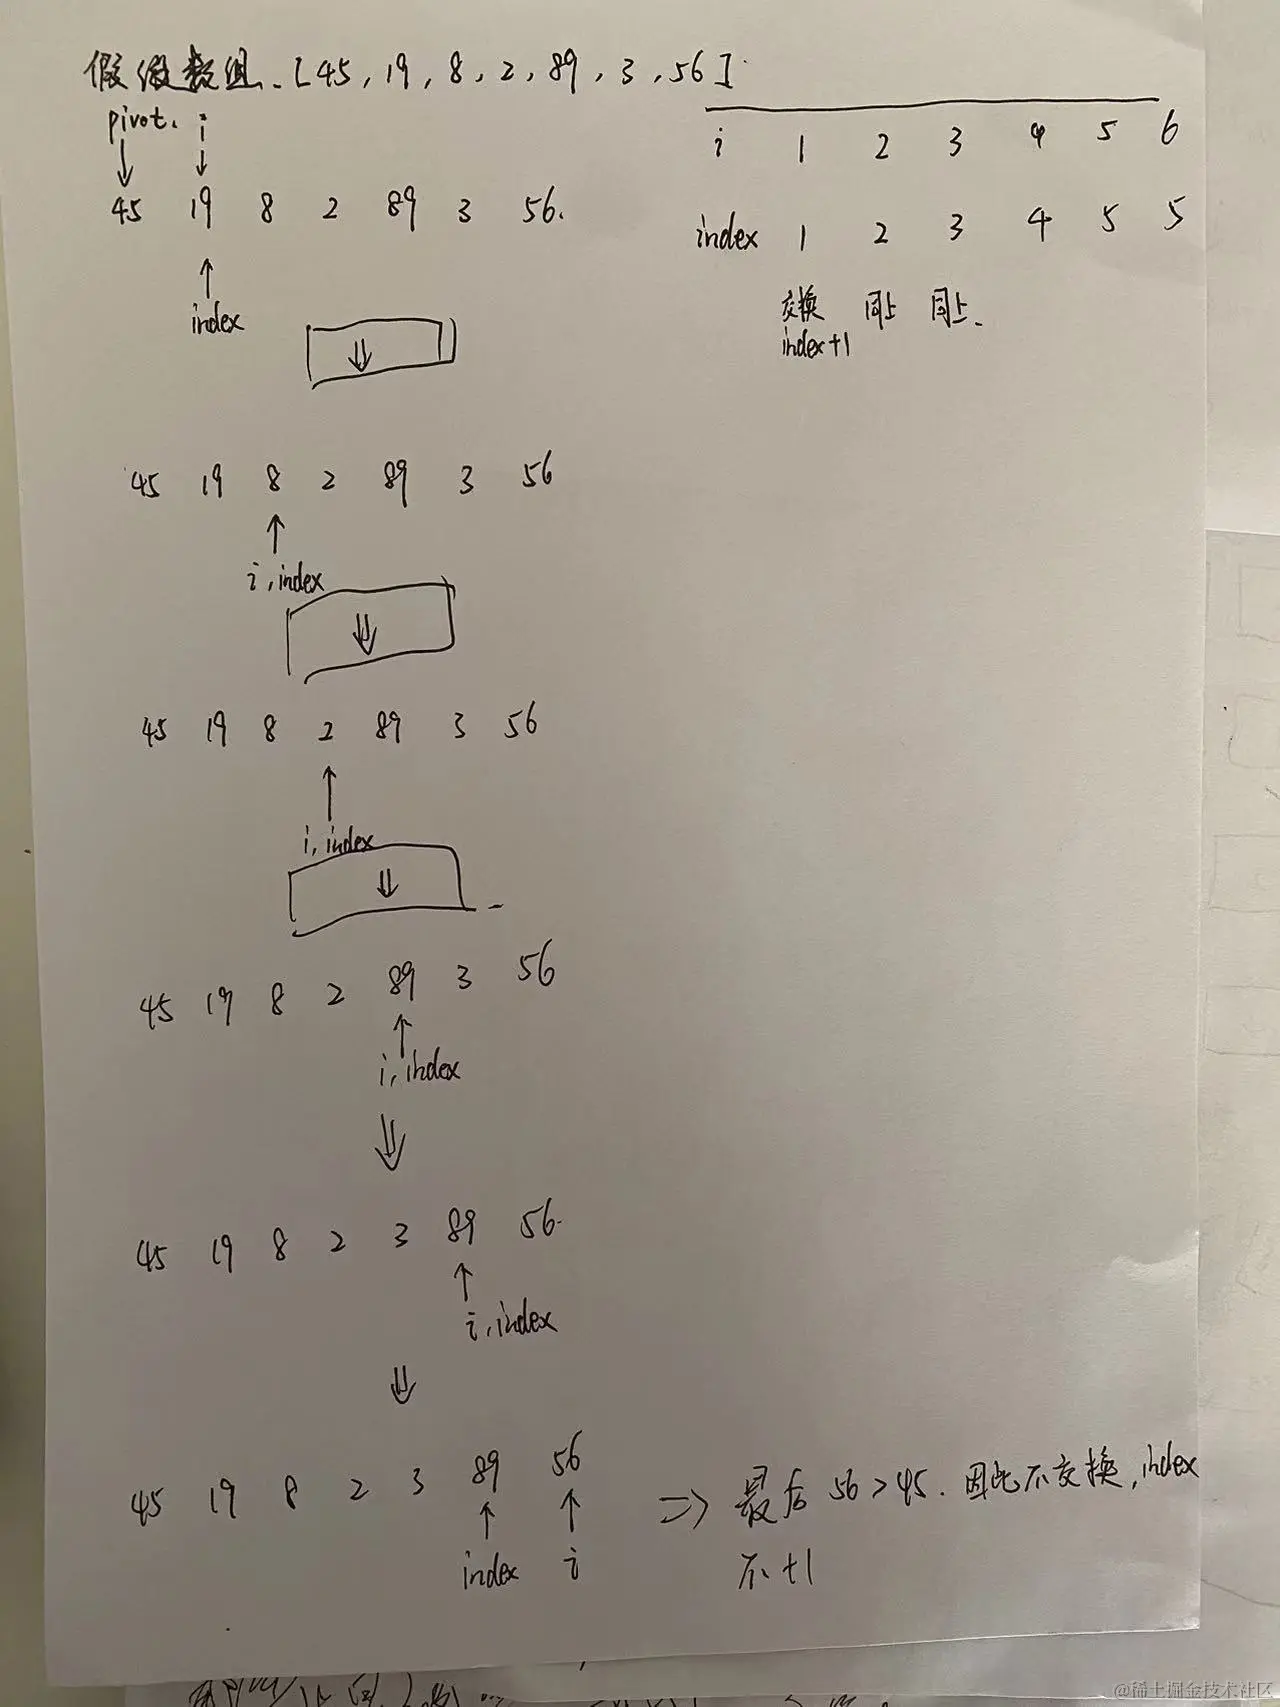 假设数组.[45,19,8,2,89,3,56].
pivot. i
45 19 8 2 89 3 56.
index
i 1 2 3 4 5 6
index 1 2 3 4 5 5
交换 同上 同上.
index+1
45 19 8 2 89 3 56
i,index
45 19 8 2 89 3 56
i,index
45 19 8 2 89 3 56
i,index
45 19 8 2 3 89 56.
i,index
45 19 8 2 3 89 56
index i
=> 最后 56>45.因此不交换,index
不+1
@稀土掘金技术社区